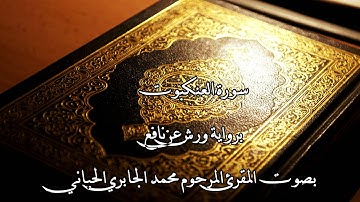 سورة العنكبوت
برواية ورش عن نافع
بصوت المقرئ المرحوم محمد الجابري الحياني